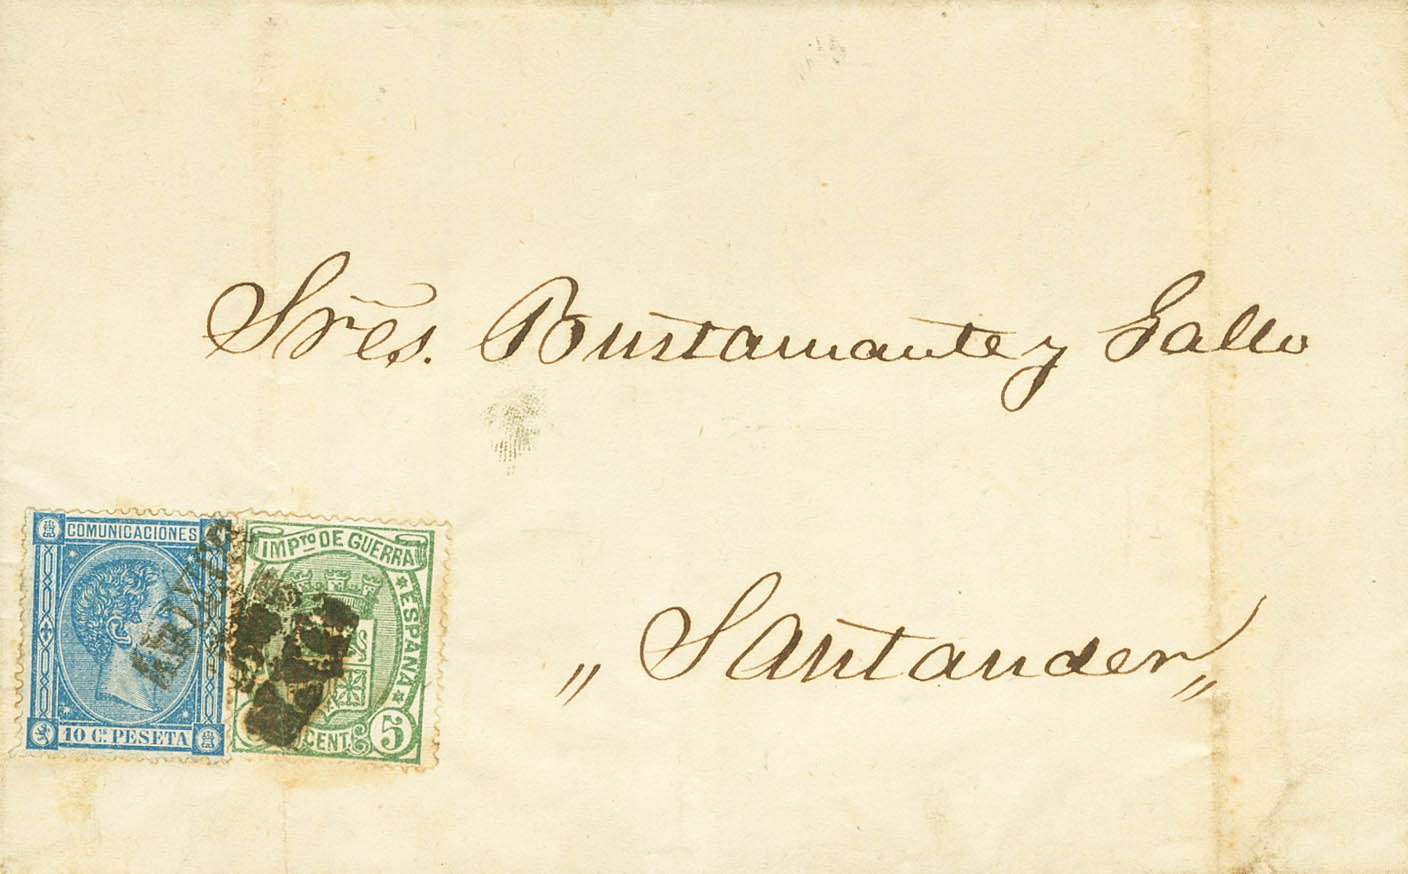 Sres. Bustamante y Gallo
„ Santander „
COMUNICACIONES
10 Cs. PESETA
IMPTO DE GUERRA
ESPAÑA
5
CENT.